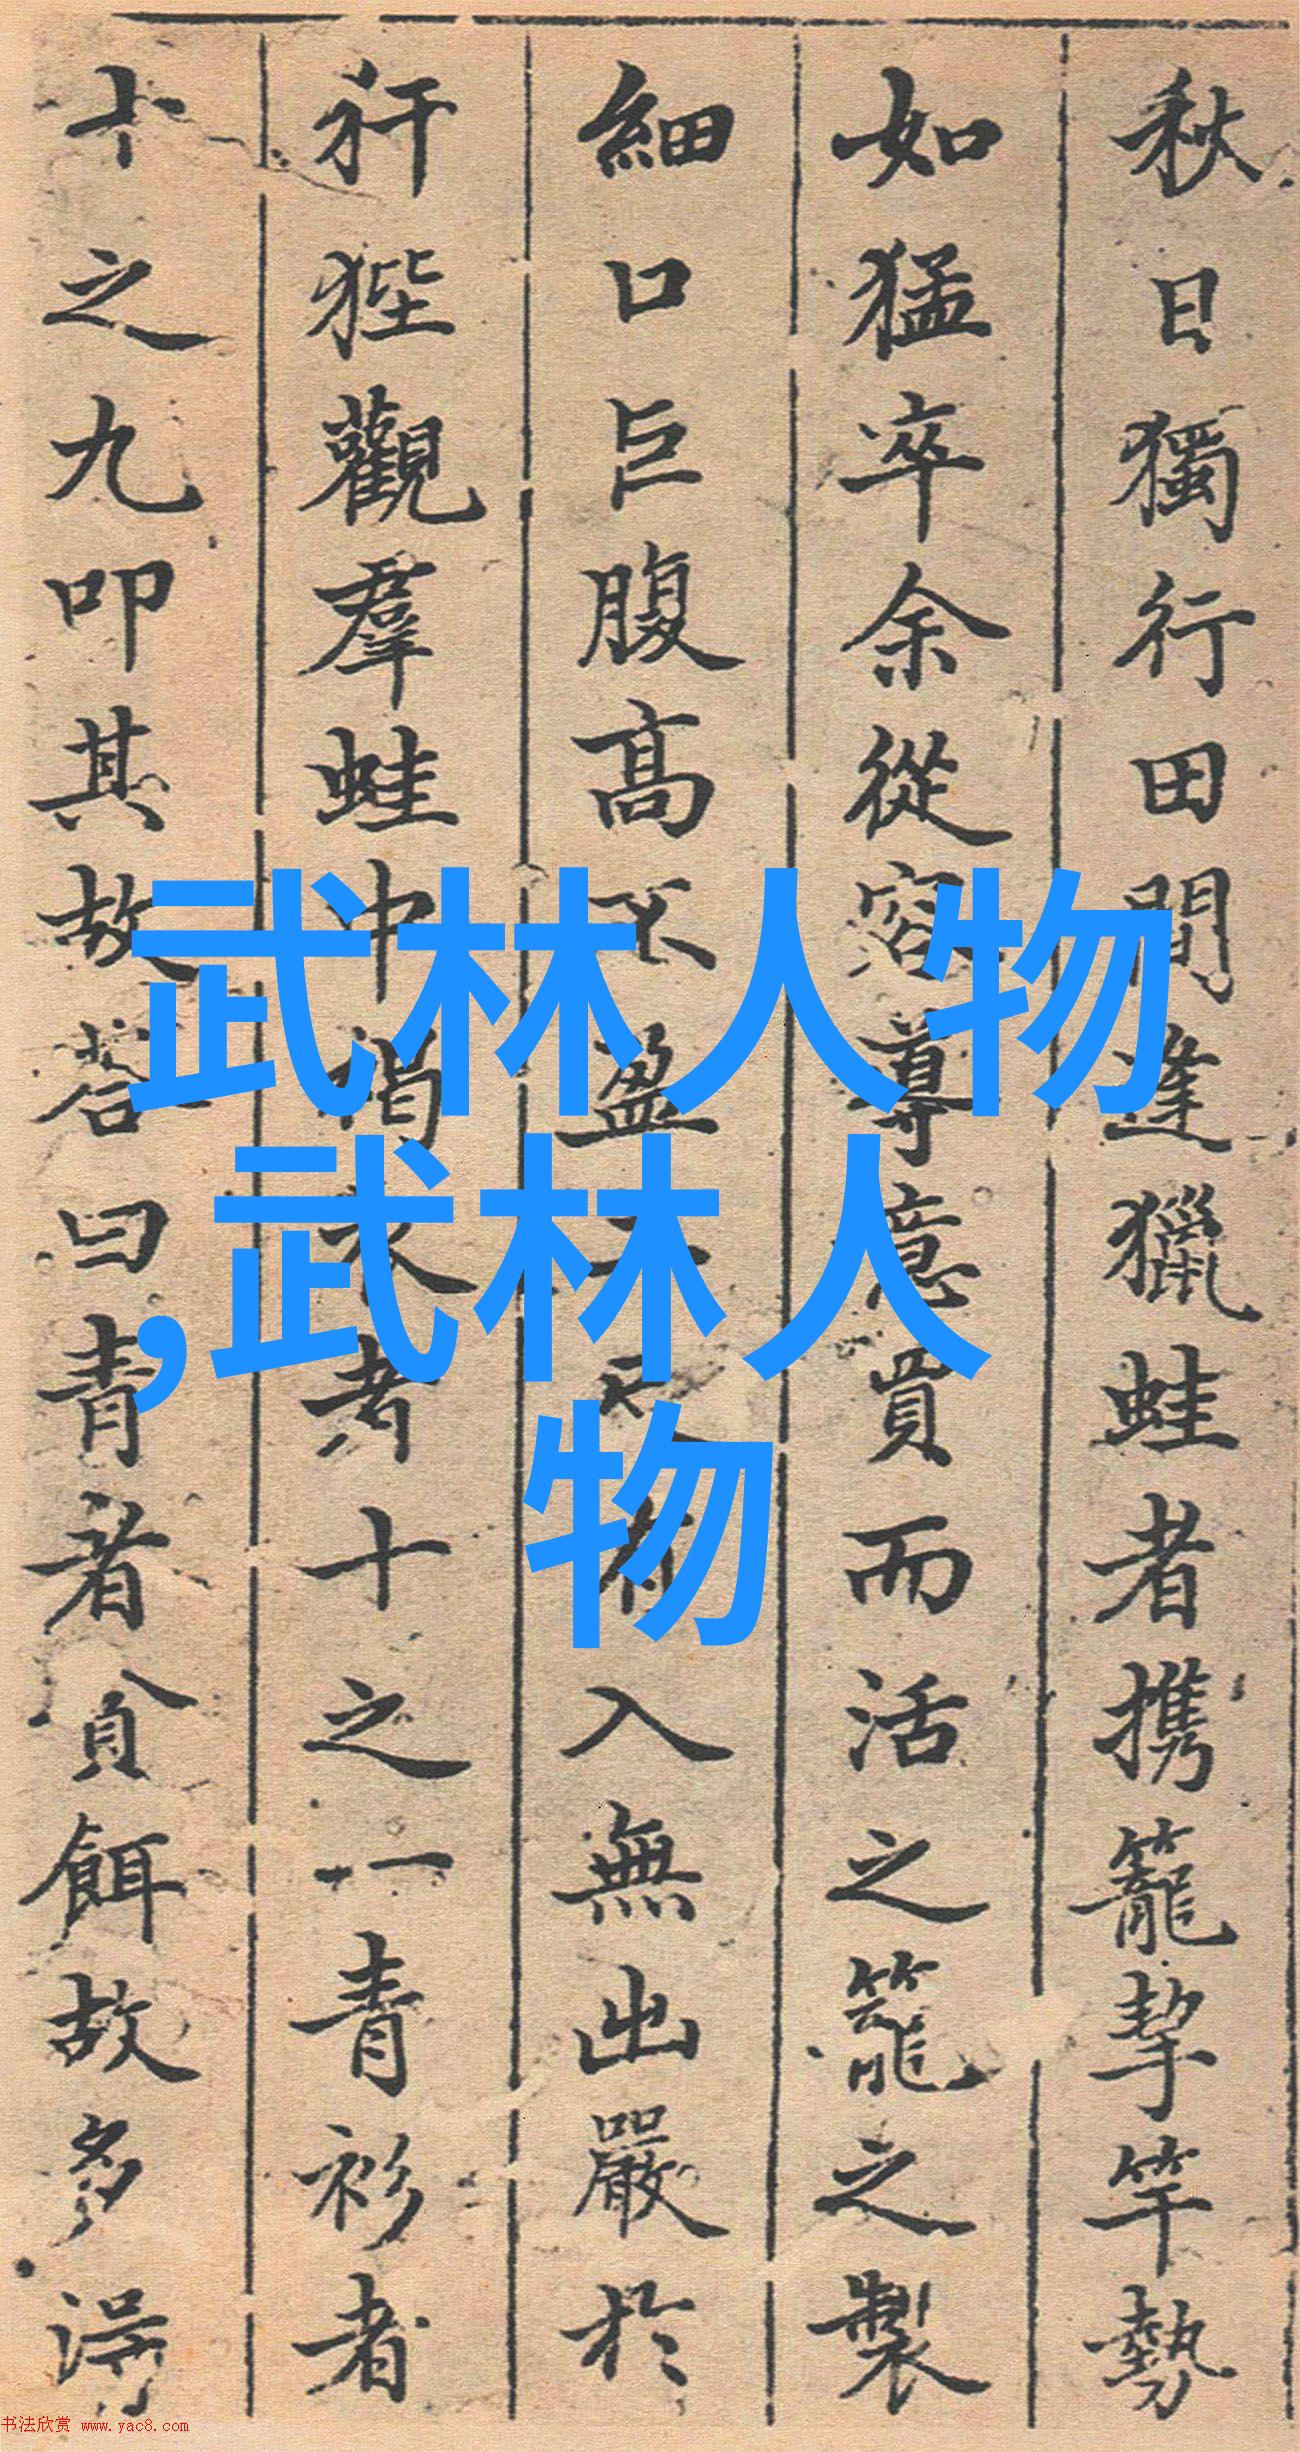 秋日獨行田間逢獵蛙者携籠挈竿勢
如猛卒余從容導意買而活之籠之製
細口巨腹高不盈尺有入無出嚴於
犴狴觀羣蛙中褐衣者十之一青衫者
十之九叩其故答曰青者貪餌故多得
武林人物
,武林人
物
书法欣赏 www.yac8.com